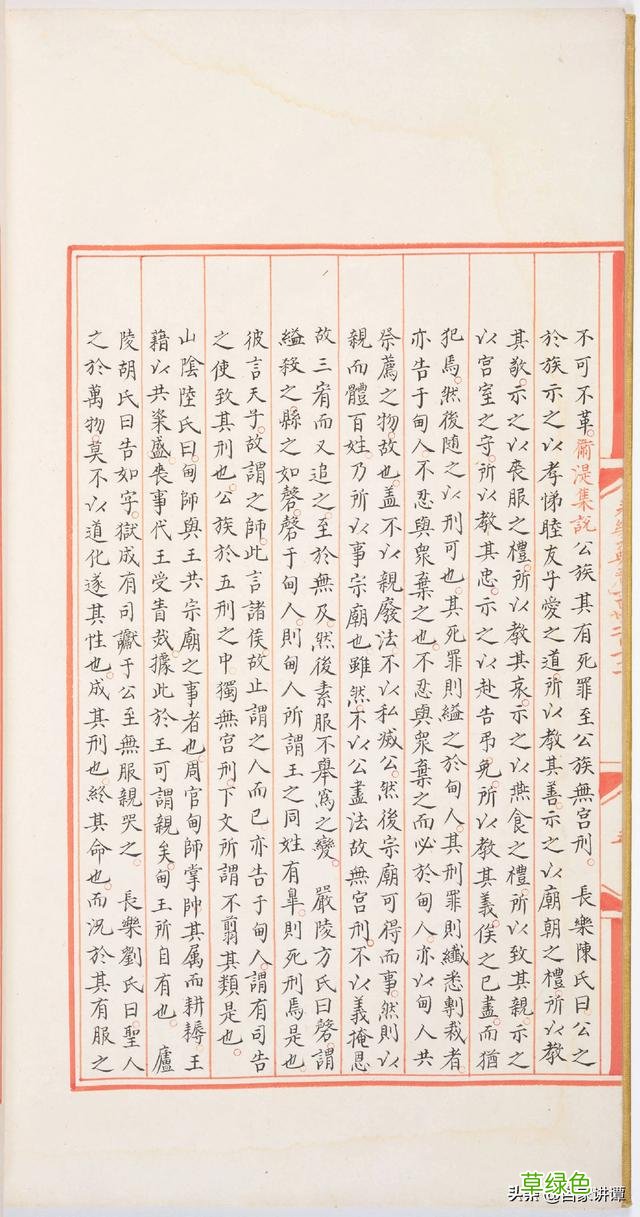 不可不革衛湜集說公族其有死罪至公族無宮刑 長樂陳氏曰公之
於族示之以孝悌睦友子愛之道所以教其善示之以廟朝之禮所以教
其敬示之以喪服之禮所以教其哀示之以燕食之禮所以致其親示之
以宮室之守所以教其忠示之以赴告弔免所以教其義俟之已盡而猶
犯焉然後隨之以刑可也其死罪則縊之於甸人其刑罪則纖悉剸裁者
亦告于甸人不忍與衆棄之也不忍與衆棄之而必於甸人亦以甸人共
祭薦之物故也盖不以親廢法不以私滅公然後宗廟可得而事然則以
親而體百姓乃所以事宗廟也雖然不以公盡法故無宮刑不以義掩恩
故三宥而又追之至於無及然後素服不舉為之變 嚴陵方氏曰磬謂
縊殺之縣之如磬磬于甸人則甸人所謂王之同姓有辠則死刑焉是也
彼言天子故謂之師此言諸侯故止謂之人而已亦告于甸人謂有司告
之使致其刑也公族於五刑之中獨無宮刑下文所謂不翦其類是也
山陰陸氏曰甸師與王共宗廟之事者也周官甸師掌帥其属而耕耨王
藉以共粢盛喪事代王受眚烖據此於王可謂親矣甸王所自有也 廬
陵胡氏曰告如字獄成有司讞于公至無服親哭之 長樂劉氏曰聖人
之於萬物莫不以道化遂其性也成其刑也終其命也而況於其有服之
头条 @百家讲谭
草绿色